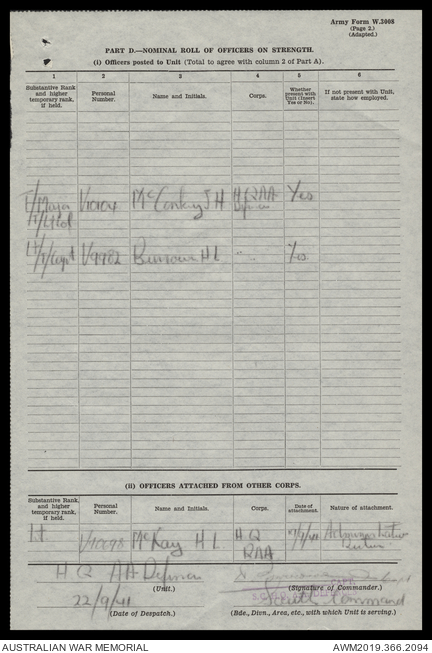 Army Form W.3008
(Page 2.)
(Adapted.)
PART D.—NOMINAL ROLL OF OFFICERS ON STRENGTH.
(i) Officers posted to Unit (Total to agree with column 2 of Part A).
1 2 3 4 5 6
Substantive Rank and higher temporary rank, if held. Personal Number. Name and Initials. Corps. Whether present with Unit (Insert Yes or No). If not present with Unit, state how employed.
T/Major V10104 McConkey J H HQ AA Yes
T/Capt V9982 Burrows H L " " Yes
(ii) OFFICERS ATTACHED FROM OTHER CORPS.
Substantive Rank, and higher temporary rank, if held. Personal Number. Name and Initials. Corps. Date of attachment. Nature of attachment.
Lt McKay H L HQ RAA Administrative duties
HQ AA Defences
(Unit.) (Signature of Commander.)
22/9/41 Command
(Date of Despatch.) (Bde., Divn., Area, etc., with which Unit is serving.)
AUSTRALIAN WAR MEMORIAL AWM2019.366.2094